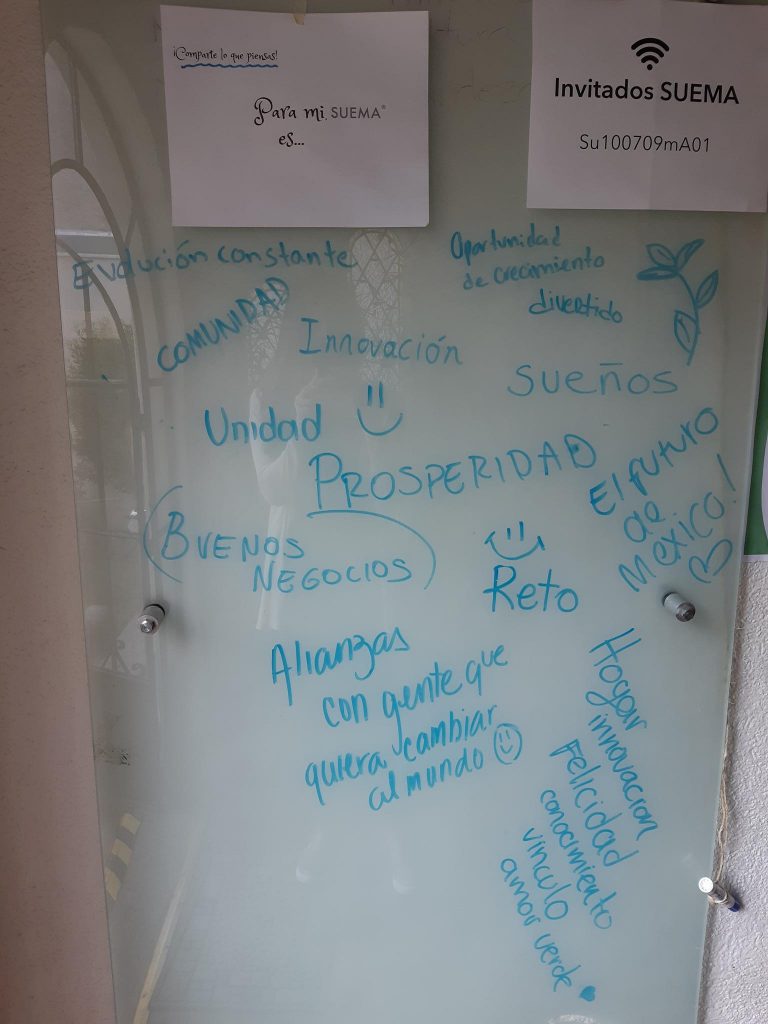 ¡Comparte lo que piensas!
Para mi SUEMA®
es...
Invitados SUEMA
Su100709mA01
Evolución constante
COMUNIDAD
Innovación
Oportunidad
de crecimiento
divertido
SUEÑOS
Unidad
PROSPERIDAD
El futuro
de
Mexico!
BUENOS
NEGOCIOS
Reto
Alianzas
con gente que
quiera cambiar
al mundo
Hogar
innovacion
Felicidad
conocimiento
vinculo
amor verde